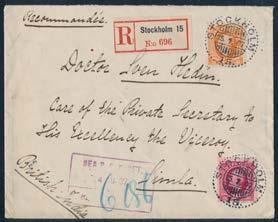 Recommandés
R
Stockholm 15
No. 696
STOCKHOLM
15
Doctor Sven Hedin.
Care of the Private Secretary to
His Excellency the Viceroy
Simla.
British India
STOCKHOLM
15
SEA P